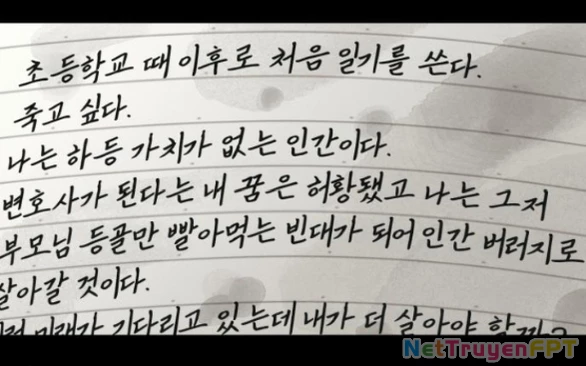 초등학교 때 이후로 처음 일기를 쓴다.
죽고 싶다.
나는 하등 가치가 없는 인간이다.
변호사가 된다는 내 꿈은 허황됐고 나는 그저
부모님 등골만 빨아먹는 빈대가 되어 인간 버러지로
살아갈 것이다.
미래가 기다리고 있는데 내가 더 살아야 할까?
NetTruyenFPT